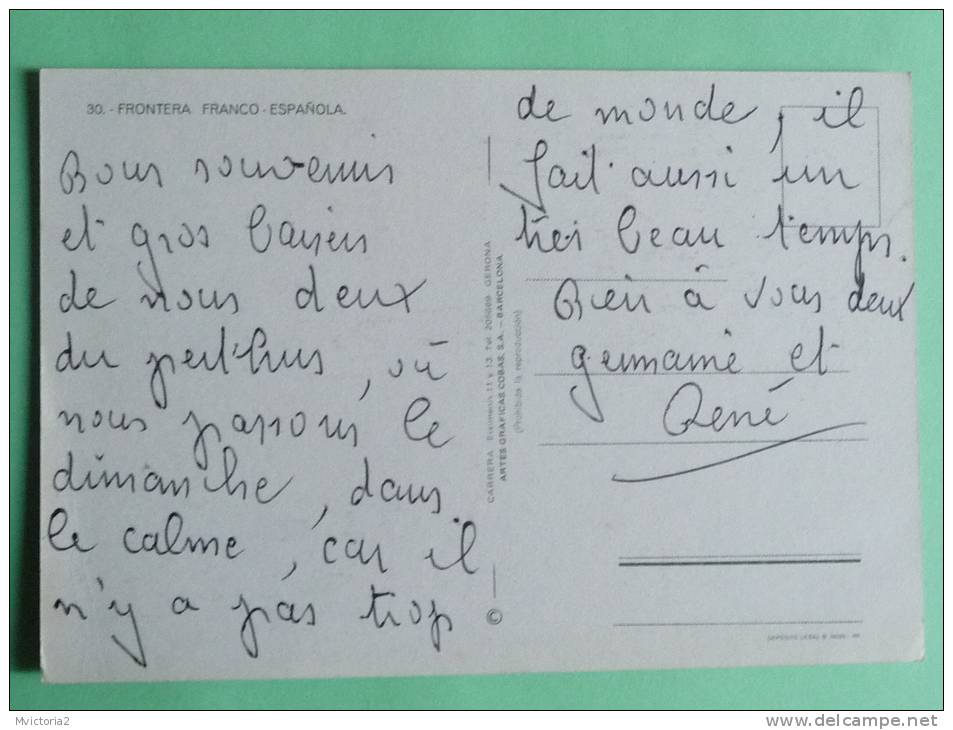 30. - FRONTERA FRANCO - ESPAÑOLA.
Bons souvenirs
et gros baisers
de nous deux
du perthus, où
nous passons le
dimanche, dans
le calme, car il
n'y a pas trop
de monde, il
fait aussi un
très beau temps.
Bien à vous deux
germaine et
René
CARRERA 11 y 13. Tel. GERONA
ARTES GRAFICAS COBAS, S.A. - BARCELONA
(Prohibida la reproducción)
©
DEPOSITO LEGAL B.
Mvictoria2
www.delcampe.net